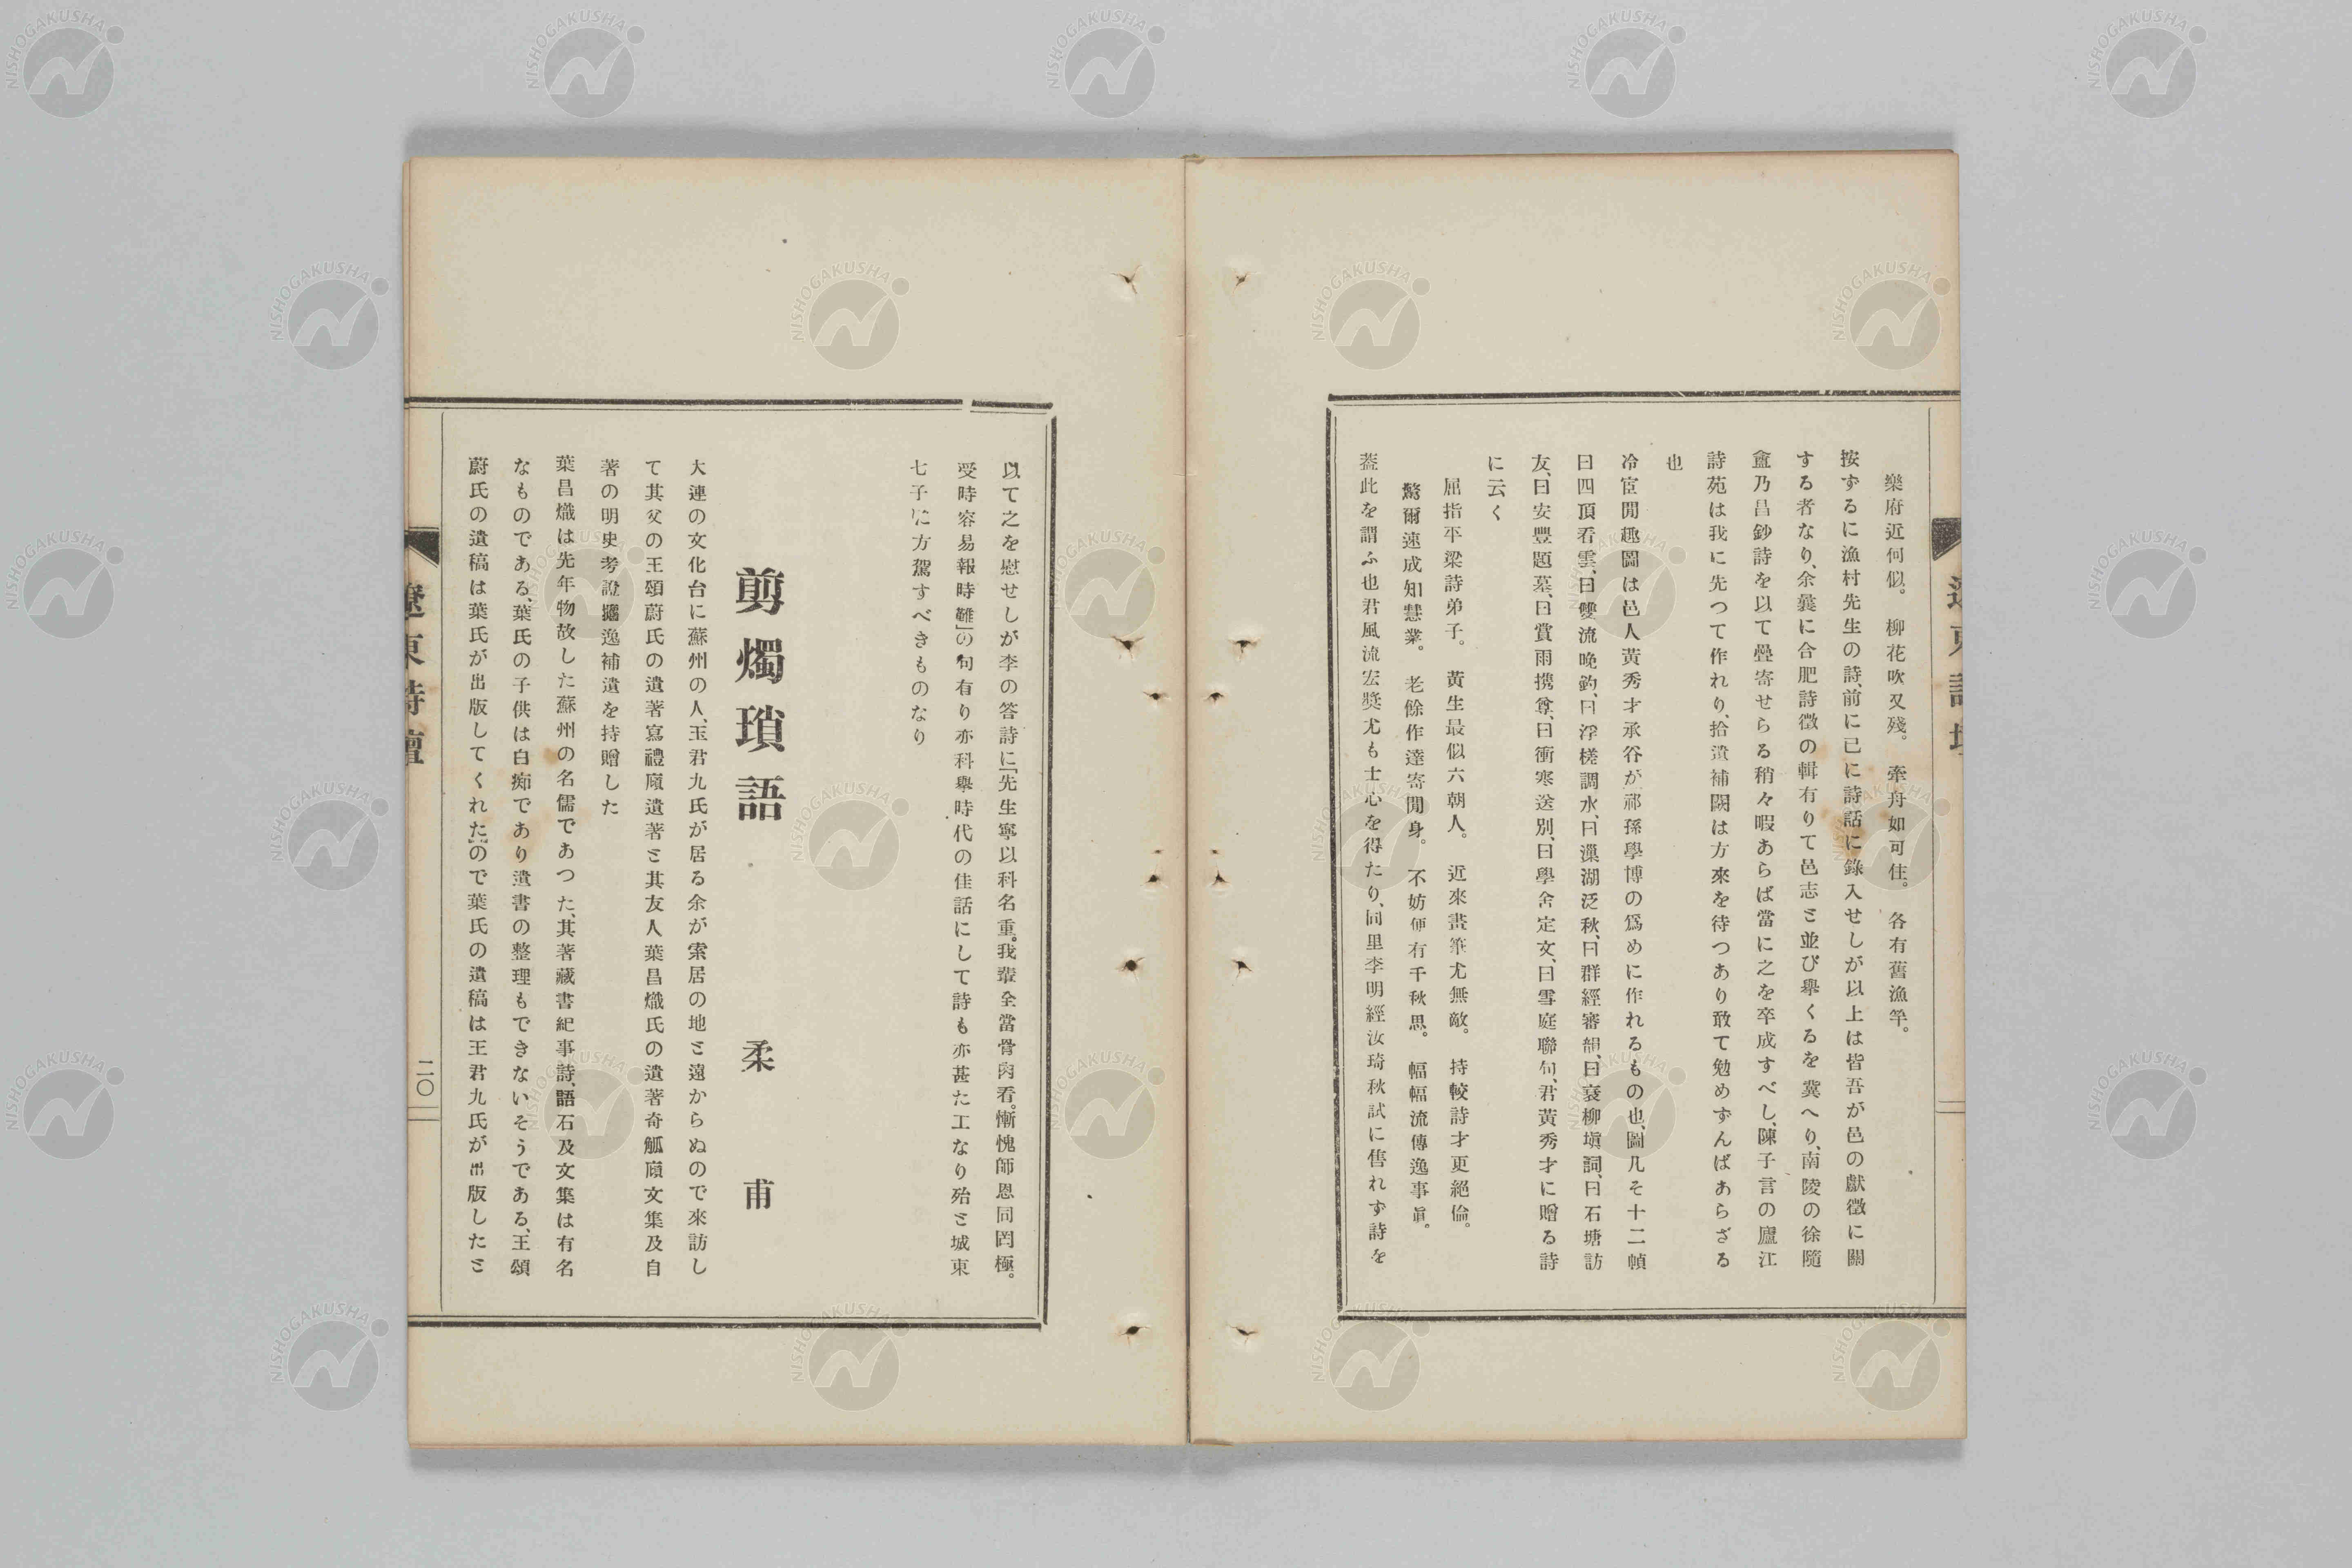 樂府近何似。　柳花吹又殘。　牽舟如可住。　各有舊漁竿。
按ずるに漁村先生の詩、前に已に詩話に錄入せしが以上は皆吾が邑の獻徵に關
する者なり、余曩に合肥詩徵の輯有りて邑志と並び擧くるを冀へり、南陵の徐隨
盦乃昌鈔詩を以て疊寄せらる稍々暇あらば當に之を卒成すべし、陳子言の廬江
詩苑は我に先つて作れり、拾遺補闕は方來を待つあり敢て勉めずんばあらざる
也
冷宦閒趣圖は邑人黃秀才承谷が祁孫學博の爲めに作れるもの也、圖凡そ十二幀
曰四頂看雲、曰雙流晚釣、曰浮槎調水、曰漅湖泛秋、曰群經審韻、曰衰柳塡詞、曰石塘訪
友、曰安豐題墓、曰賞雨携尊、曰衝寒送別、曰學舍定文、曰雪庭聯句、君黃秀才に贈る詩
に云く
屈指平梁詩弟子。　黃生最似六朝人。　近來畫筆尤無敵。　持較詩才更絕倫。
驚爾速成知慧業。　老餘作達寄閒身。　不妨便有千秋思。　幅幅流傳逸事眞。
葢此を謂ふ也君風流宏獎尤も士心を得たり、同里李明經汝琦秋試に售れず詩を
遼東詩壇
以て之を慰せしが李の答詩に「先生寧以科名重。我輩全當骨肉看。慚愧師恩同罔極。
受時容易報時難」の句有り亦科擧時代の佳話にして詩も亦甚た工なり殆と城東
七子に方駕すべきものなり
剪燭瑣語
柔甫
大連の文化台に蘇州の人、王君九氏が居る余が索居の地と遠からぬので來訪し
て其父の王頌蔚氏の遺著寫禮廎遺著と其友人葉昌熾氏の遺著奇觚廎文集及自
著の明史考證攟逸補遺を持贈した
葉昌熾は先年物故した蘇州の名儒であつた、其著藏書紀事詩、語石及文集は有名
なものである、葉氏の子供は白痴であり遺書の整理もできないそうである、王頌
蔚氏の遺稿は葉氏が出版してくれた」ので葉氏の遺稿は王君九氏が出版したと
遼東詩壇
二〇